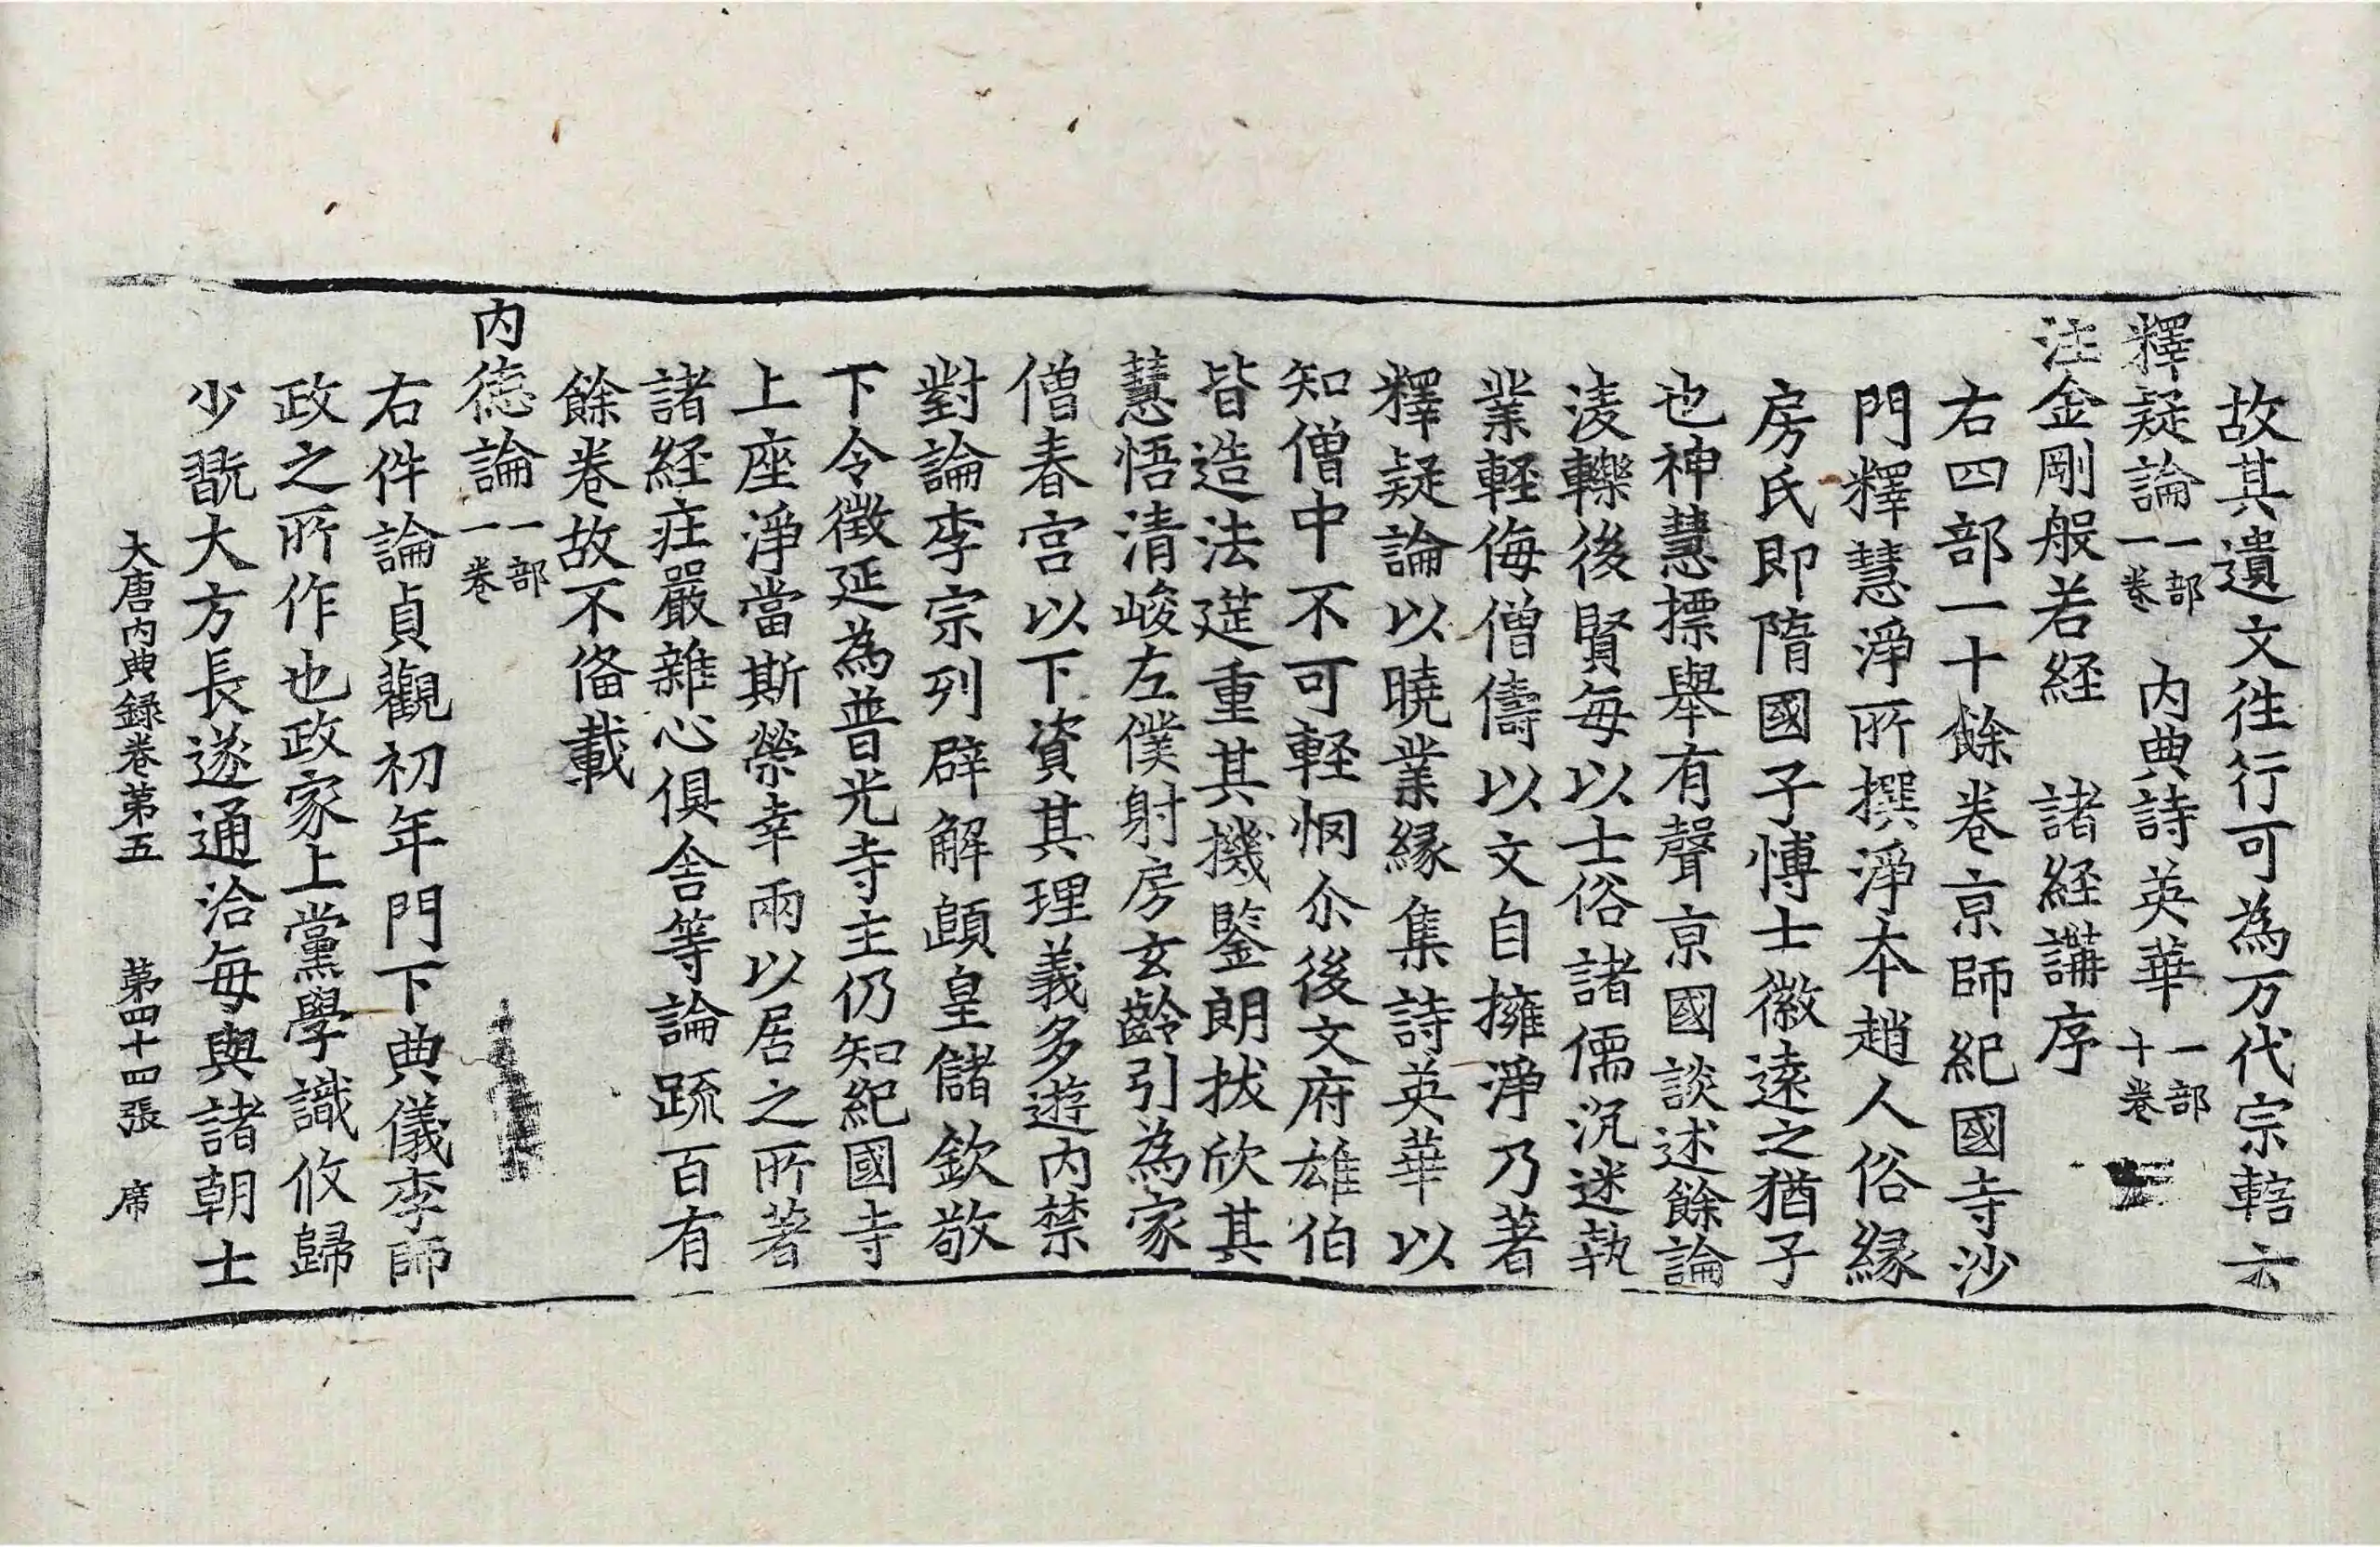 故其遺文往行可為万代宗轄云
釋疑論一部一卷　内典詩英華一部十卷
注金剛般若経　諸経講序
右四部一十餘卷京師紀國寺沙
門釋慧淨所撰淨本趙人俗緣
房氏即隋國子博士徽遠之猶子
也神慧摽舉有聲京國談述餘論
淩轢後賢每以士俗諸儒沉迷執
業軽侮僧儔以文自擁淨乃著
釋疑論以曉業緣集詩英華以
知僧中不可軽悯尒後文府雄伯
皆造法莚重其機鑒朗拔欣其
慧悟清峻左僕射房玄齡引為家
僧春宮以下資其理義多遊内禁
對論李宗列辟解頤皇儲欽敬
下令徵延為普光寺主仍知紀國寺
上座淨當斯榮幸兩以居之所著
諸経疰嚴雜心俱舍等論䟽百有
餘卷故不俻載
内德論一部一卷
右件論貞觀初年門下典儀李師
政之所作也政家上黨學識攸歸
少翫大方長遂通洽每與諸朝士
大唐内典録卷第五　第四十四張　席